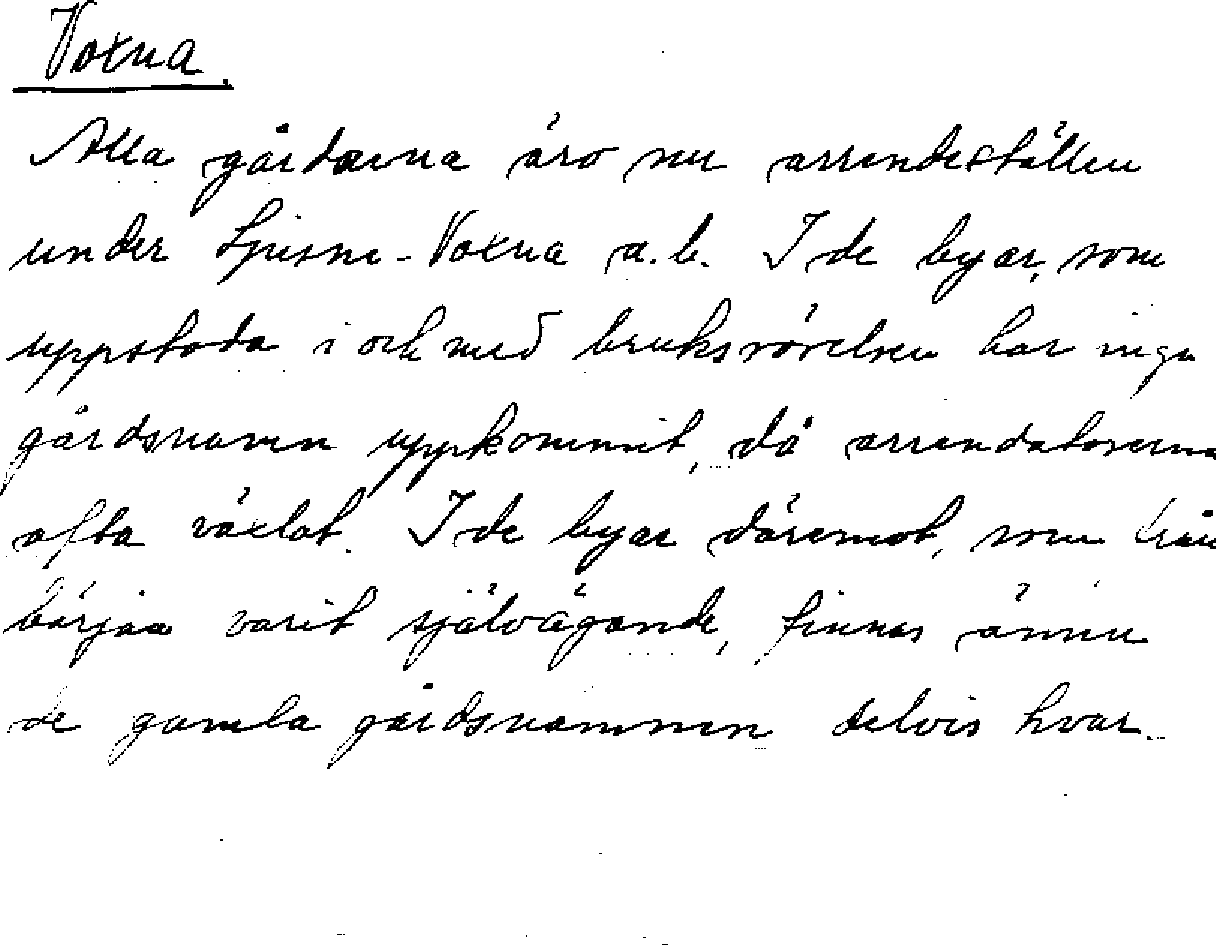 Voxna.
Alla gårdarna äro nu arrendeställen
under Ljusne-Voxna a.b. I de byar, som
uppstodo i och med bruksrörelsen har inga
gårdsnamn uppkommit, då arrendatorerna
ofta växlat. I de byar däremot, som från
början varit självägande, finnas ännu
de gamla gårdsnamnen delvis kvar.